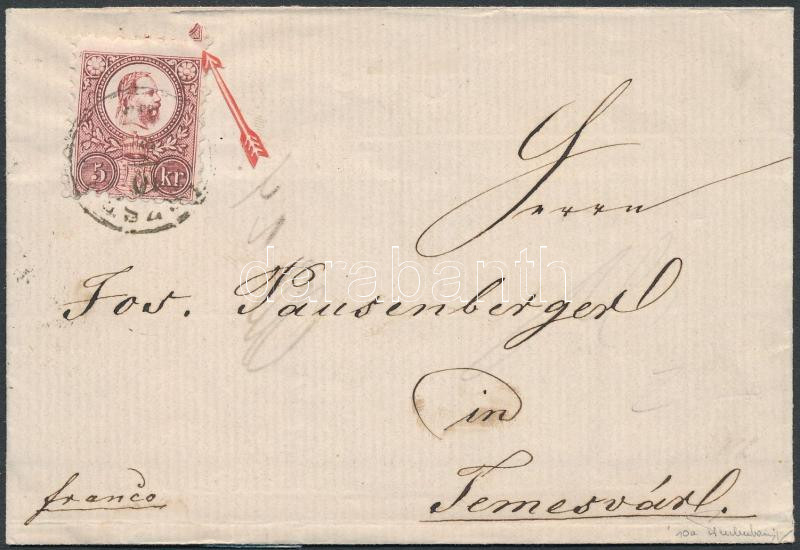 5 kr
Herrn
Jos. Pausenberger
in
Temesvár.
franco
darabanth